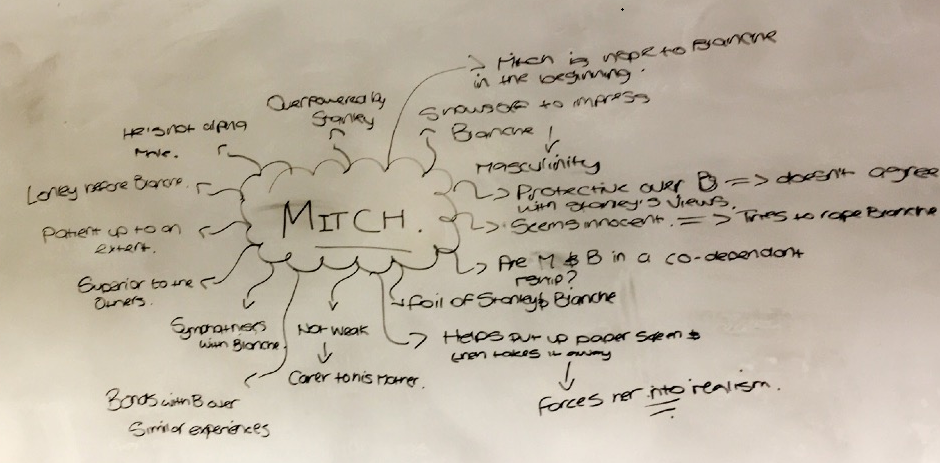 MITCH.
→ Mitch is hope to Blanche
in the beginning.
Shows off to impress
Blanche
↓
Masculinity
→ Protective over B => doesn't agree
with Stanley's views.
→ Seems innocent. => Tries to rape Blanche
→ Are M & B in a co-dependant
rship?
→ foil of Stanley & Blanche
→ Helps put up paper &
then takes it away
↓
forces her into realism.
Not weak
↓
Carer to his Mother.
Bonds with B over
Similar experiences
Sympathises
with Blanche.
Superior to the
Others.
Patient up to an
extent.
Loney before Blanche.
He's not alpha
male.
Overpowered by
Stanley